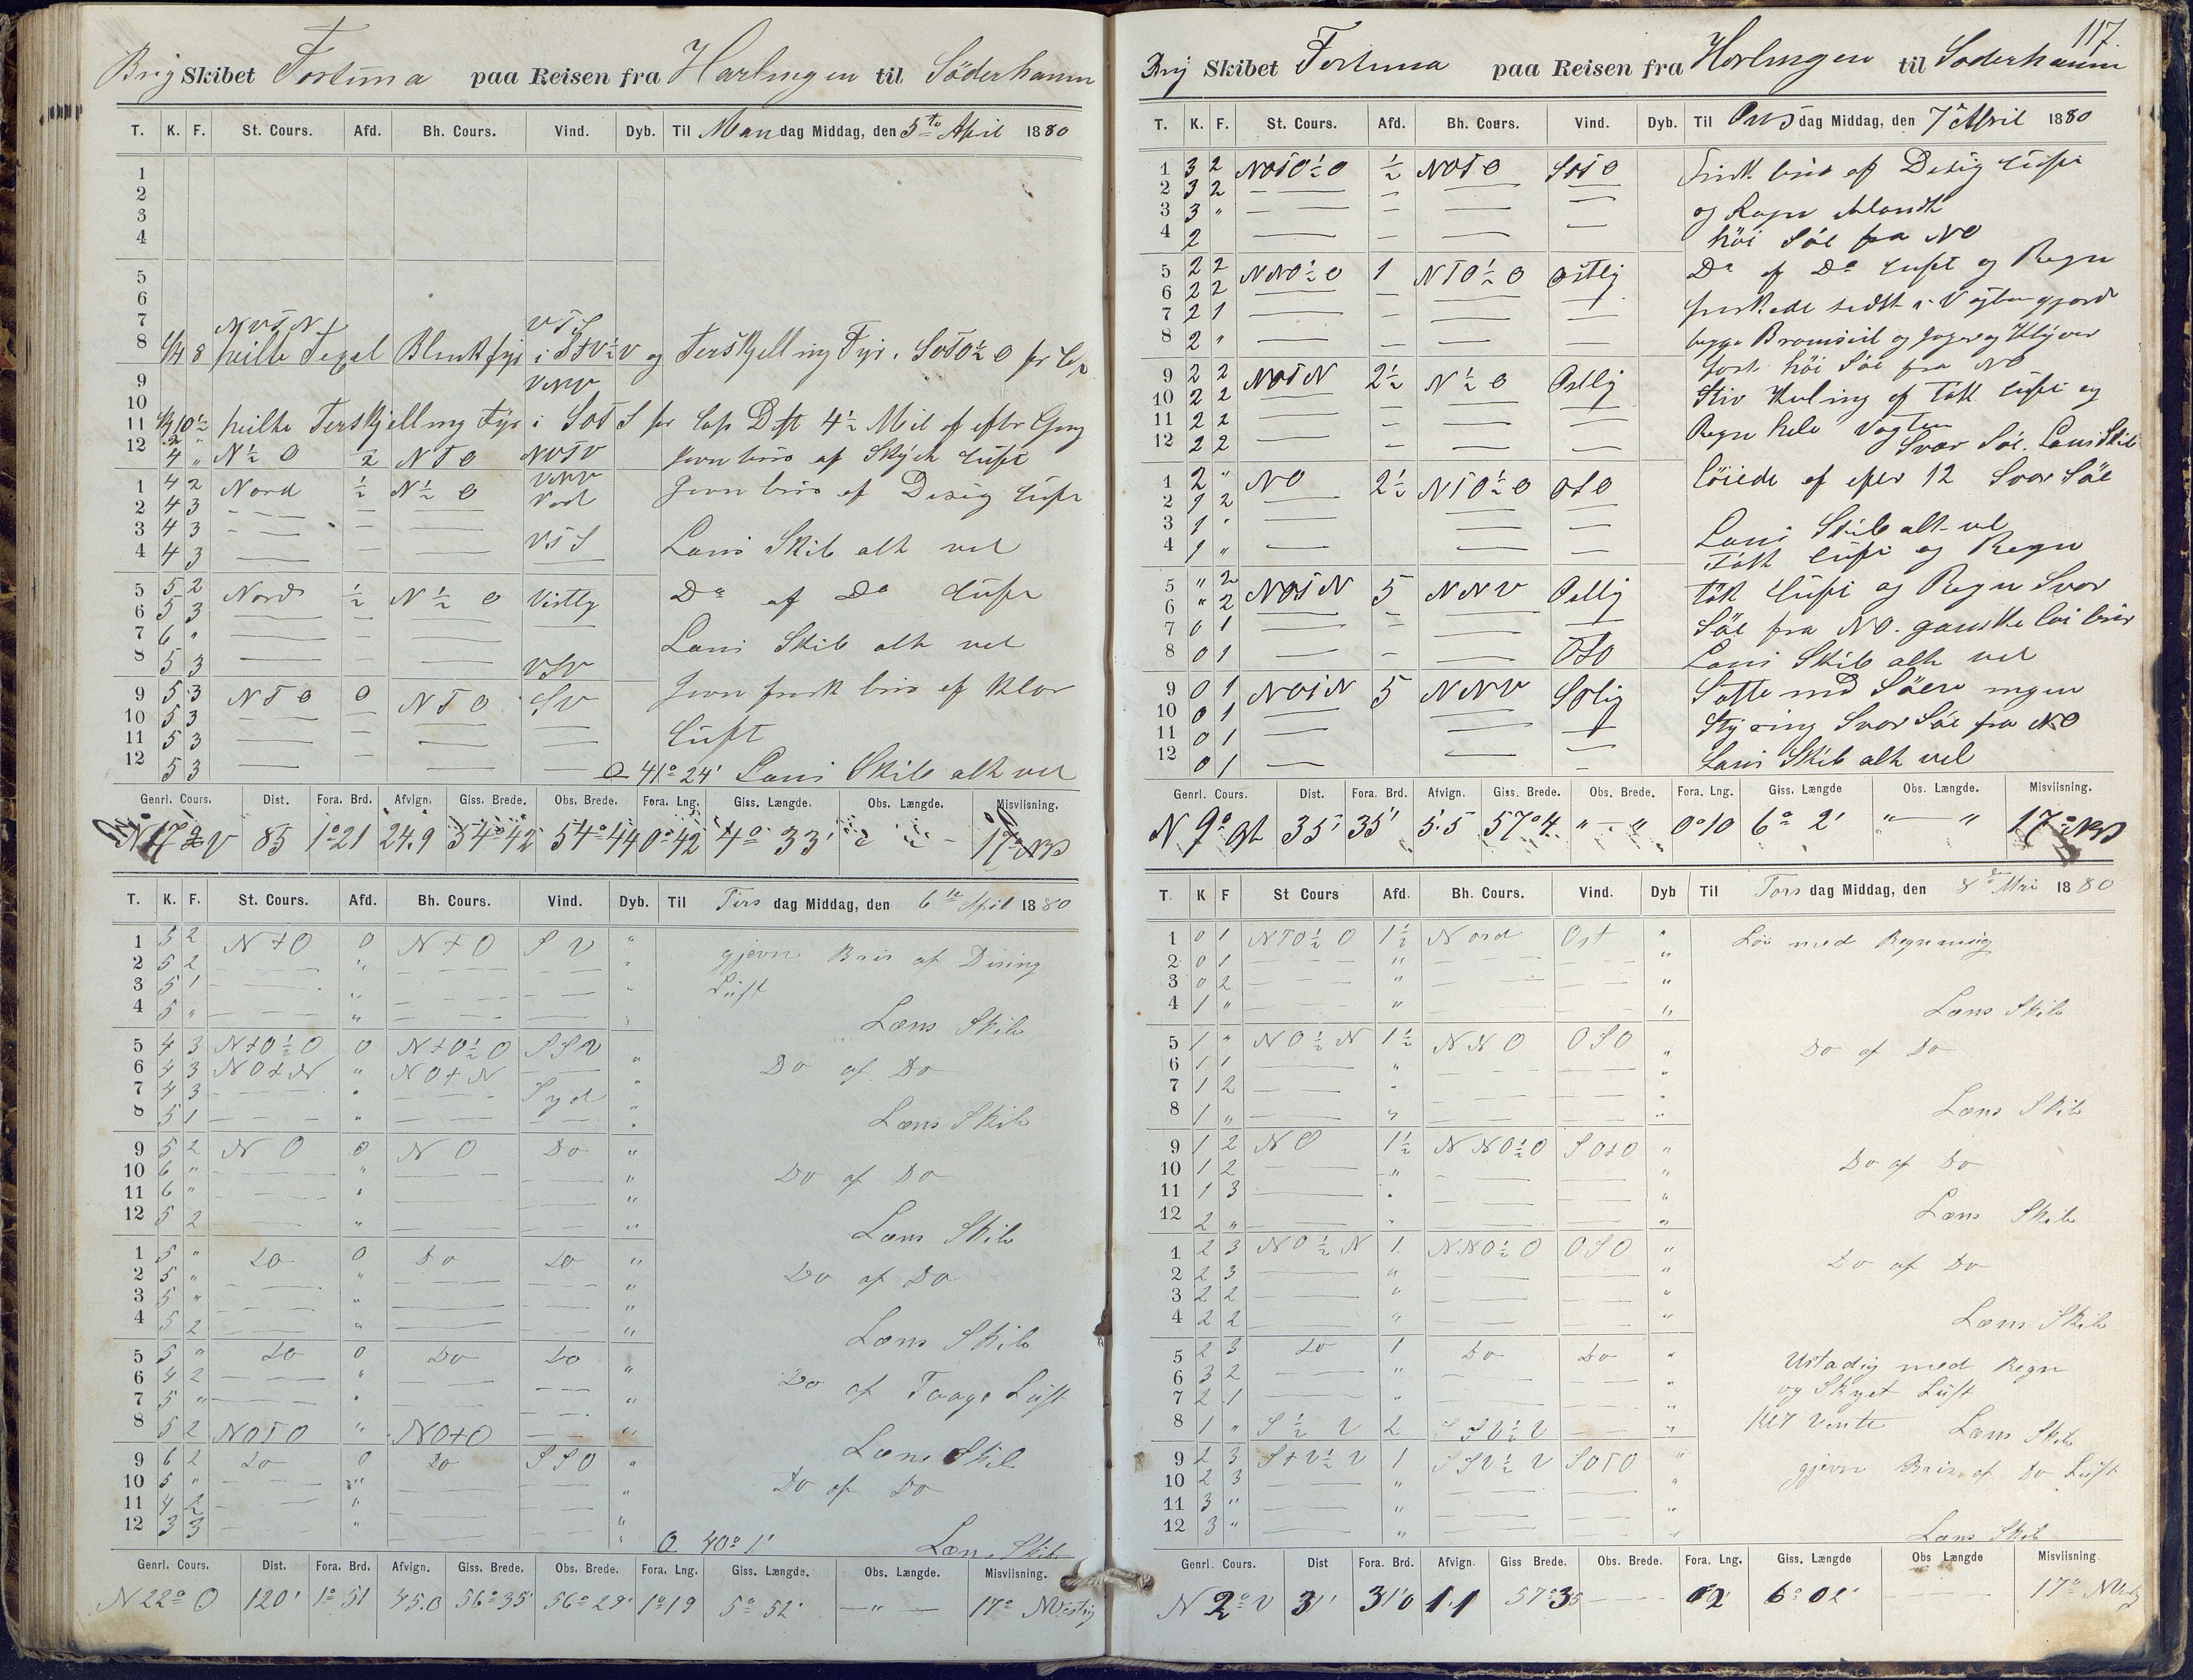 Brig Skibet Fortuna paa Reisen fra Harlingen til Söderhamn
T. K. F. St. Cours. Afd. Bh. Cours. Vind. Dyb. Til Mandag Middag, den 5te April 1880
1
2
3
4
5
6
7 NOTN VTS
8 peilte Texel Blinkfyr i STV½V og Terskjelling Fyr i SOTO½O
9 VNV
10
11 10½ peilte Terskjelling Fyr i SOTS 4½ Mil
12 4 " N½O ½ NTO NVTV Jevn bris af Skyet Luft
VNV
1 4 2 Nord ½ N½O Vest Jevn bris af Disig Luft
2 4 3
3 4 3 VTS Læns Skib alt vel
4 4 3
5 5 2 Nord ½ N½O Vestlig Do af Do Luft
6 5 3
7 6 " Læns Skib alt vel
8 5 3 VSV
9 5 3 NTO 0 NTO SV Jevn frisk bris af Klar
10 5 3
11 5 3 Luft
12 5 3 41° 24' Læns Skib alt vel
Genrl. Cours. Dist. Fora. Brd. Afvign. Giss. Brede. Obs. Brede. Fora. Lng. Giss. Længde. Obs. Længde. Misviisning.
N 17° V 85 1°21 24.9 54°42 54°44 0°42 4° 33' 17°
T. K. F. St. Cours. Afd. Bh. Cours. Vind. Dyb. Til Tirsdag Middag, den 6te April 1880
1 5 2 N+O 0 N+O SV " gjevn Bris af Dising
2 5 2 "
3 5 1 " Luft
4 5 " " Læns Skib
5 4 3 N+O½O 0 N+O½O SSV Do af Do
6 4 3 NO+N " NO+N "
7 4 3 " Syd "
8 5 1 " " Læns Skib
9 5 2 NO 0 NO Do "
10 6 " " " Do af Do
11 6 " " "
12 5 2 " " Læns Skib
1 5 " Do 0 Do Do "
2 5 " " " Do af Do
3 5 " " "
4 5 2 " " Læns Skib
5 5 " Do 0 Do Do "
6 4 2 " Do af Taage Luft
7 5 " " "
8 5 2 NOTO " NO+O " Læns Skib
9 6 2 Do 0 Do SSO "
10 5 " " " Do af Do
11 4 2 " "
12 3 3 " " 40° 1' Læns Skib
Genrl. Cours. Dist. Fora. Brd. Afvign. Giss. Brede. Obs. Brede. Fora. Lng. Giss. Længde. Obs. Længde. Misviisning.
N 22° O 120' 1° 51 45.0 56° 35' 56° 29' 1° 19 5° 52' — " — 17° NVestlig
117.
Brig Skibet Fortuna paa Reisen fra Harlingen til Söderhamn
T. K. F. St. Cours. Afd. Bh. Cours. Vind. Dyb. Til Onsdag Middag, den 7de April 1880
1 3 2 NOTO½O ½ NOTO SOTO Frisk bris af Disig Luft
2 3 2
3 3 " og Regn iblandt
4 2 höi Söe fra NO
5 2 2 NNO½O 1 NTO½O Östlig Do af Do Luft og Regn
6 2 2
7 2 1
8 2 " begge Bramseil og Jager og Klyver
9 2 2 NOTN 2½ N½O Ostlig fast höi Söe fra NO
10 2 2 Stiv Kuling af Tökt Luft og
11 2 2 Regn hele Vagten
12 2 2 Svær Söe. Læns Skib
1 2 " NO 2½ NTO½O OSO löiede af efter 12 Svær Söe
2 1 2
3 1 " Læns Skib alt vel
4 1 " Tökt Luft og Regn
5 " 2 NOTN 5 NNV Ostlig Tökt Luft og Regn Svær
6 " 2
7 0 1 Söe fra NO. ganske löi bris
8 0 1 OSO Læns Skib alt vel
9 0 1 NOTN 5 NNV SOlig Satte med Söen ingen
10 0 1
11 0 1 Styring Svær Söe fra NO
12 0 1 Læns Skib alt vel
Genrl. Cours. Dist. Fora. Brd. Afvign. Giss. Brede. Obs. Brede. Fora. Lng. Giss. Længde Obs. Længde. Misviisning.
N 9° Ost 35' 35' 5.5 57°4 " — " 0°10 6° 2' " — " 17°
T. K F St Cours Afd. Bh. Cours. Vind. Dyb Til Torsdag Middag, den 8de 1880
1 0 1 NTO½O 1½ Nord Ost " Löi med Regn
2 0 1 " "
3 0 2 " "
4 1 " " " Læns Skib
5 1 " NO½N 1½ NNO OSO " Do af Do
6 1 1 " "
7 1 2 " "
8 1 " " " Læns Skib
9 1 2 NO 1½ NNO½O SO+O "
10 1 2 " " Do af Do
11 1 3 " "
12 2 " " " Læns Skib
1 2 3 NO½N 1. NNO½O OSO "
2 2 3 " " Do af Do
3 2 2 " "
4 2 2 " " Læns Skib
5 2 3 Do 1 Do Do "
6 3 2 " " Ustadig med Regn
7 2 1 " " og Skyet Luft
8 1 " S½V 2 SSV½V " Kl 7 Vente Læns Skib
9 2 3 S+V½V 1 SSV½V SOTO "
10 2 3 " " gjevn Bris af Do Luft
11 3 " " "
12 3 " " " Læns Skib
Genrl. Cours. Dist Fora. Brd. Afvign. Giss Brede. Obs. Brede. Fora. Lng. Giss. Længde Obs Længde Misviisning.
N 2° V 31' 31'0 1.1 57°35 02' 6° 02' 17° NVestlig